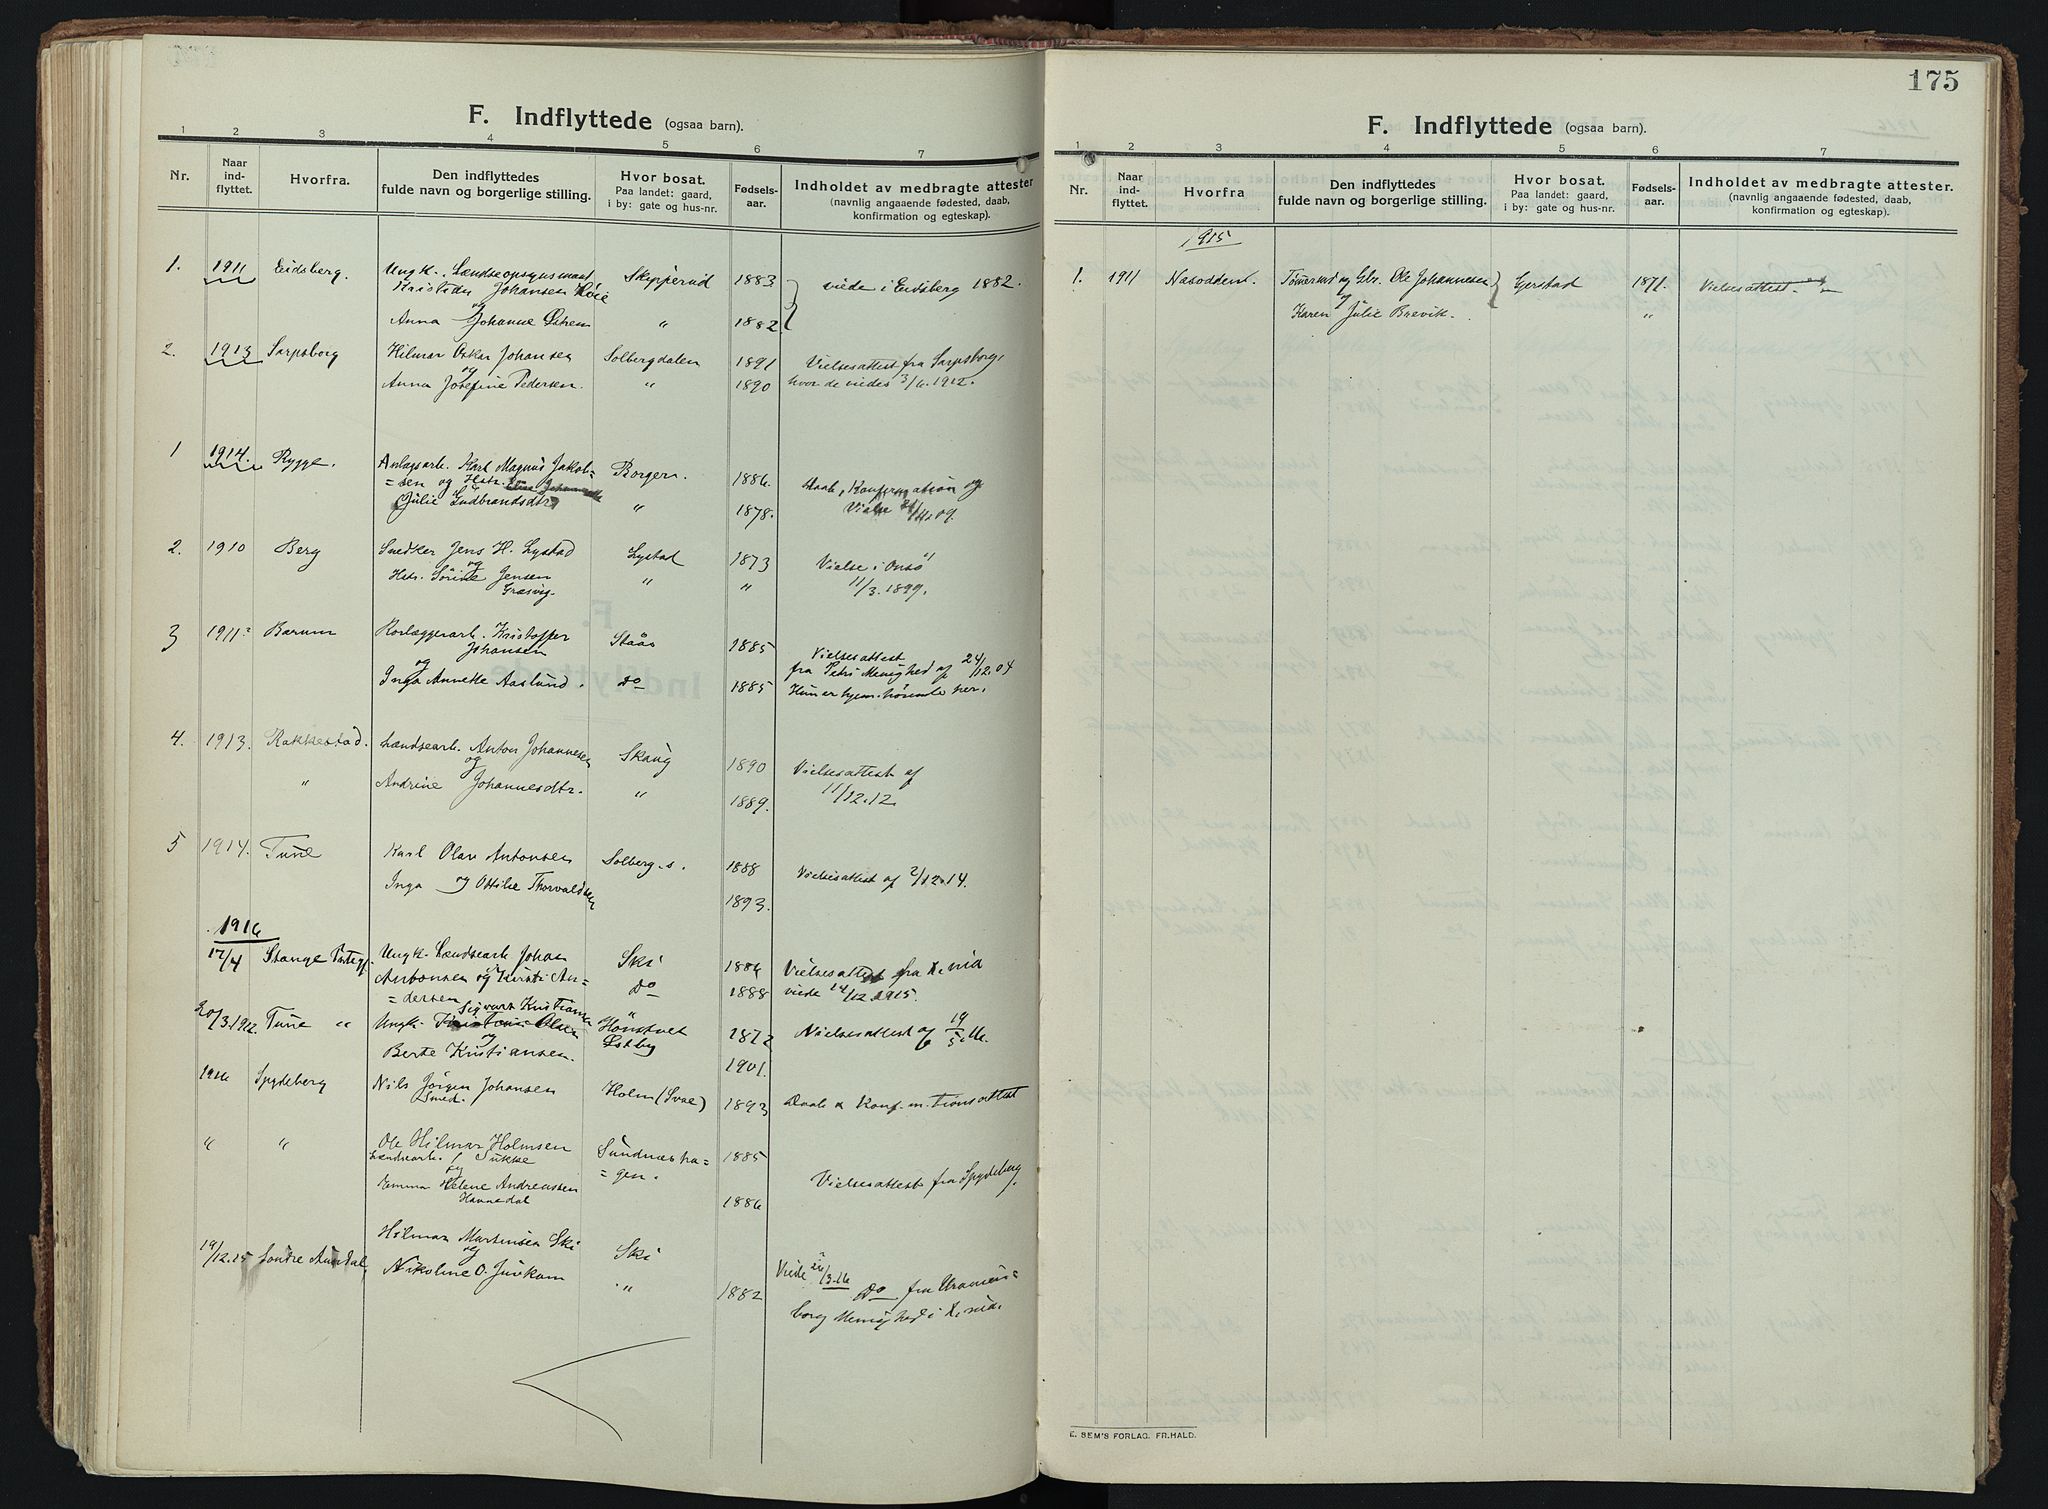 F. Indflyttede (ogsaa barn).
1 2 3 4 5 6 7
Nr. Naar ind-flyttet. Hvorfra. Den indflyttedes fulde navn og borgerlige stilling. Hvor bosat. Paa landet: gaard, i by: gate og hus-nr. Fødsels-aar. Indholdet av medbragte attester (navnlig angaaende fødested, daab, konfirmation og egteskap).
1. 1911 Eidsberg. Ungk. Lændseopsynsmand Skipperud 1883 viede i Eidsberg 1882.
Kristian Johansen
og
Anna Johanne " 1882
2. 1913 Sarpsborg Hilmar Oskar Johansen Solbergdalen 1891 Vielsesattest fra Sarpsborg,
og
Anna Josefine Pedersen. " 1890 hvor de viedes 3/6.1912.
1 1914. Rygge. Anlægsarb. Karl Magnus Jakob= Borgen. 1886.
=sen og Hstr. Daab, Konfirmation og
Julie Gudbrandsdtr " 1878. Vielse /11.09.
2. 1910 Berg Snedker Jens H. Lystad Lystad 1873 Vielse i Onsö
og
Hstr. Sörine Jensen " " 11/3.1899.
Græsvig.
3 1911? Bærum Rørlæggerarb. Kristoffer 1885
Johansen Vielsesattest
og fra Petri Menighed af 24/12.04
Inga Annette Aaslund. Do 1885 Hun er hjemhörende her.
4. 1913. Rakkestad. Lændsearb. Anton Johannesen Skaug 1890 Vielsesattest af
og
" Andrine Johannesdtr. " 1889. 11/12.12
5 1914. Tune Karl Olav Antonsen Solberg. s. 1888 Vielsesattest af 2/12.14.
Inga og Ottilie Thorvaldsen 1893.
1916
17/4 Stange Prstegj. Ungk. Lændsearb. Johan Ski 1886 Vielsesattest fra K.nia
Antonsen og Kirsti An= Do 1888 viede 14/12 1915.
=dersen
Sigvart Kristiansen "
20/3.1912 Tune " Ungk. Olsen 1872 Vielsesattest af
og Østby
Berte Kristiansen. 1901.
1916 Spydeberg Nils Jörgen Johansen Holm (Svae) 1893 Daab & Konf.m.tionsattest
Smed.
" " Ole Hilmar Holmsen Sundnesha= 1885
Lændsearb. =gen.
og Vielsesattest fra Spydeberg
Emma Helene Andreassen 1886
Havnedal
Hilmar Martinsen Ski
19/12.15 Söndre Aurdal og Ski Viede /3.16
Nikoline O. " 1882 Do fra Uranien=
borg Menighed i K.nia.
175
F. Indflyttede (ogsaa barn).
1 2 3 4 5 6 7
Nr. Naar ind-flyttet. Hvorfra Den indflyttedes fulde navn og borgerlige stilling. Hvor bosat. Paa landet: gaard, i by: gate og hus-nr. Fødsels-aar. Indholdet av medbragte attester. (navnlig angaaende fødested, daab, konfirmation og egteskap).
1915
1. 1911 Nesodden. Tömmermd og Gbr. Ole Johannesen Gjerstad 1871. Vielsesattest.
og
Karen Julie Brevik. "
E. SEM'S FORLAG. FR.HALD.